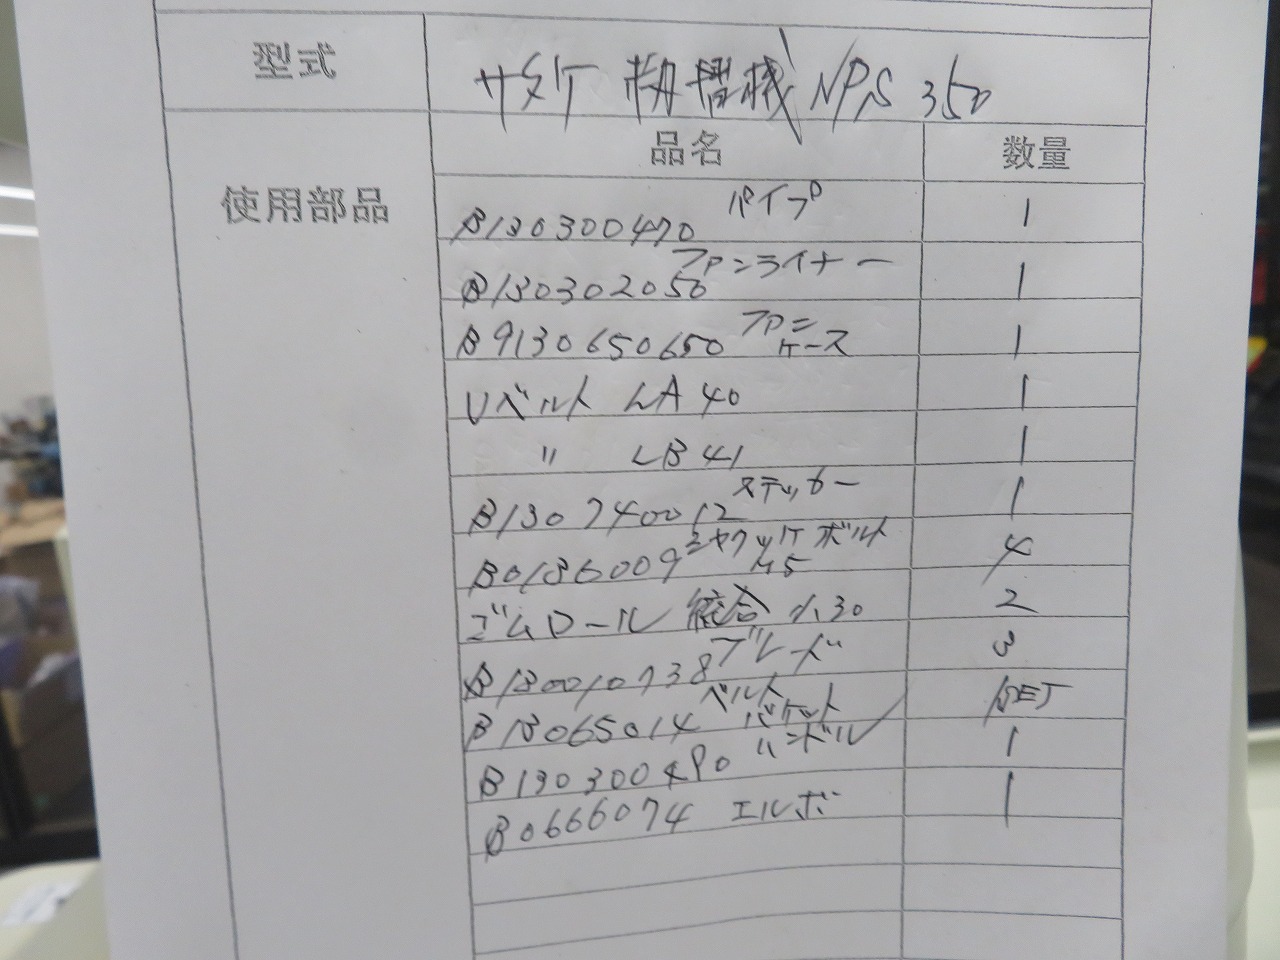 型式
サタケ 籾摺機 NPS 350
使用部品
品名
数量
B130300470 パイプ
1
B130302050 ファンライナー
1
B9130650650 ファンケース
1
Vベルト LA 40
1
〃 LB 41
1
B130740012 ステッカー
1
ボルト
4
ゴムロール 統合 小30
2
ブレード
3
B13065014 ベルト バケット
1SET
1
B0666074 エルボ
1